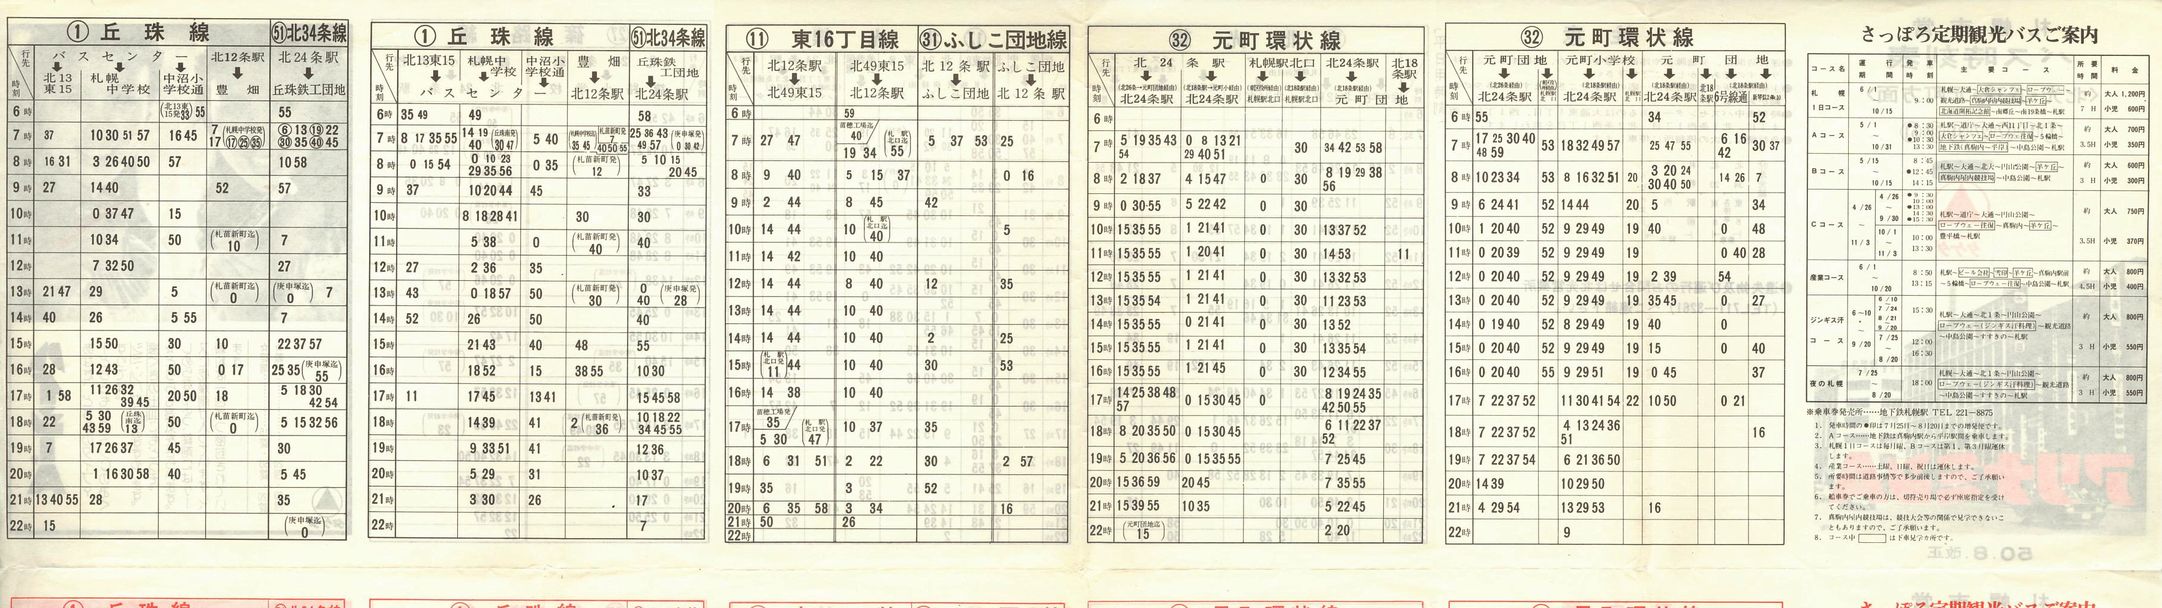 ① 丘珠線 �51北34条線
行先 バスセンター 北12条駅 北24条駅
時刻 北13東15 札幌中学校 中沼小学校通 豊畑 丘珠鉄工団地
6時 (北13東15発33) 55 55
7時 37 10 30 51 57 16 45 7 17 (札幌中学校発 ⑰㉕㉟) ⑥ 13 ⑲ 22 ㉚ 35 ㊵ 45
8時 16 31 3 26 40 50 57 10 58
9時 27 14 40 52 57
10時 0 37 47 15
11時 10 34 50 (札苗新町迄 10) 7
12時 7 32 50 27
13時 21 47 29 5 (札苗新町迄 0) (庚申塚迄 0) 7
14時 40 26 5 55 7
15時 15 50 30 10 22 37 57
16時 28 12 43 50 0 17 25 35 (庚申塚迄 55)
17時 1 58 11 26 32 39 45 20 50 18 5 18 30 42 54
18時 22 5 30 43 59 (丘珠南迄 13) 50 (札苗新町迄 0) 5 15 32 56
19時 7 17 26 37 45 30
20時 1 16 30 58 40 5 45
21時 13 40 55 28 35
22時 15 (庚申塚迄 0)
① 丘珠線 �51北34条線
行先 北13東15 札幌中学校 中沼小学校通 豊畑 丘珠鉄工団地
時刻 バスセンター 北12条駅 北24条駅
6時 35 49 49 58
7時 8 17 35 55 14 19 40 (丘珠南発 30 47) 5 40 (札幌中学校迄 35 45) (札苗新町発 7 40 50 55) 25 36 43 49 57 (庚申塚発 0 30 42)
8時 0 15 54 0 10 23 29 35 56 0 35 (札苗新町発 12) 5 10 15 20 45
9時 37 10 20 44 45 33
10時 8 18 28 41 30 30
11時 5 38 0 (札苗新町発 40) 40
12時 27 2 36 35
13時 43 0 18 57 50 (札苗新町発 30) 0 40 (庚申塚発 28)
14時 52 26 50 40
15時 21 43 40 48 55
16時 18 52 15 38 55 10 30
17時 11 17 45 13 41 15 45 58
18時 14 39 41 2 (札苗新町発 36) 10 18 22 34 45 55
19時 9 33 51 41 12 36
20時 5 29 31 10 37
21時 3 30 26 17
22時 7
⑪ 東16丁目線 ㉛ふしこ団地線
行先 北12条駅 北49東15 北12条駅 ふしこ団地
時刻 北49東15 北12条駅 ふしこ団地 北12条駅
6時 59
7時 27 47 苗穂工場迄 40 19 34 (札駅北口迄 55) 5 37 53 25
8時 9 40 5 15 37 0 16
9時 2 44 8 45 42
10時 14 44 10 (札駅北口迄 40) 5
11時 14 42 10 40
12時 14 44 8 40 12 35
13時 14 44 10 40
14時 14 44 10 40 2 25
15時 (札駅北口発 11) 44 10 40 30 53
16時 14 38 10 40
17時 苗穂工場発 35 5 30 (札駅北口発 47) 10 37 35
18時 6 31 51 2 22 30 2 57
19時 35 3 52
20時 6 35 58 3 34 16
21時 50 26
22時
㉜ 元町環状線
行先 北24条駅 札幌駅北口 北24条駅 北18条駅
時刻 北24条駅 北24条駅 札幌駅北口 元町団地
6時
7時 5 19 35 43 54 0 8 13 21 29 40 51 30 34 42 53 58
8時 2 18 37 4 15 47 0 30 8 19 29 38 56
9時 0 30 55 5 22 42 0 30
10時 15 35 55 1 21 41 0 30 13 37 52
11時 15 35 55 1 20 41 0 30 14 53 11
12時 15 35 55 1 21 41 0 30 13 32 53
13時 15 35 54 1 21 41 0 30 11 23 53
14時 15 35 55 0 21 41 0 30 13 52
15時 15 35 55 1 21 41 0 30 13 35 54
16時 15 35 55 1 21 45 0 30 12 34 55
17時 14 25 38 48 57 0 15 30 45 0 8 19 24 35 42 50 55
18時 8 20 35 50 0 15 30 45 6 11 22 37 52
19時 5 20 36 56 0 15 35 55 7 25 45
20時 15 36 59 20 45 7 35 55
21時 15 39 55 10 35 5 22 45
22時 (元町団地迄 15) 2 20
㉜ 元町環状線
行先 元町団地 元町小学校 元町団地
時刻 北24条駅 北24条駅 北24条駅 北18条駅 6号線通
6時 55 34 52
7時 17 25 30 40 48 59 53 18 32 49 57 25 47 55 6 16 42 30 37
8時 10 23 34 53 8 16 32 51 20 3 20 24 30 40 50 14 26 7
9時 6 24 41 52 14 44 20 5 34
10時 1 20 40 52 9 29 49 19 40 0 48
11時 0 20 39 52 9 29 49 19 0 40 28
12時 0 20 40 52 9 29 49 19 2 39 54
13時 0 20 40 52 9 29 49 19 35 45 0 27
14時 0 19 40 52 8 29 49 19 40 0
15時 0 20 40 52 9 29 49 19 15 0 40
16時 0 20 40 55 9 29 51 19 0 45 37
17時 7 22 37 52 11 30 41 54 22 10 50 0 21
18時 7 22 37 52 4 13 24 36 51 16
19時 7 22 37 54 6 21 36 50
20時 14 39 10 29 50
21時 4 29 54 13 29 53 16
22時 9
さっぽろ定期観光バスご案内
コース名 運行期間 発車時刻 主要コース 所要時間 料金
札幌1日コース 6/1 10/15 9:00 約7H 大人 1,200円 小児 600円
Aコース 5/1 10/31 約3.5H 大人 700円 小児 350円
Bコース 5/15 10/15 約3H 大人 600円 小児 300円
Cコース 4/26 9/30 10/1 11/3 10:00 13:30 札駅~道庁~大通~円山公園~ロープウェー往復~真駒内~羊ケ丘~豊平橋~札駅 約3.5H 大人 750円 小児 370円
産業コース 6/1 10/20 8:50 13:15 約4.5H 大人 800円 小児 400円
ジンギス汗コース 15:30 12:00 16:30 札駅~大通~北1条~円山公園~ロープウェー(ジンギス汗料理)~観光道路~中島公園~すすきの~札駅 約3H 大人 800円 小児 550円
夜の札幌 7/25 8/20 18:00 札幌~大通~北1条~円山公園~ロープウェー(ジンギス汗料理)~観光道路~中島公園~すすきの~札駅 約3H 大人 800円 小児 550円
※乗車券発売所……地下鉄札幌駅 TEL 221-8875
1. 発車時間の●印は7月25日~8月20日までの増発便です。
2. Aコース……地下鉄は真駒内駅から平岸駅間を乗車します。
3. 札幌1日コースは毎月曜、Bコースは第1、第3月曜運休します。
4. 産業コース……土曜、日曜、祝日は運休します。
5. 所要時間は道路事情等で多少前後しますので、ご了承願います。
6. 船車券でご乗車の方は、切符売り場で必ず座席指定を受けてください。
7. 真駒内屋内競技場は、競技大会等の関係で見学できないこともありますので、ご了承願います。
8. コース中 は下車見学カ所です。